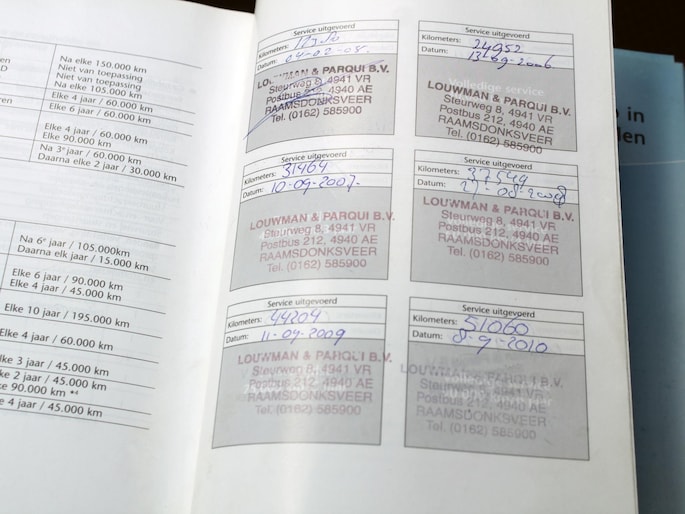 Na elke 150.000 km
Niet van toepassing
Niet van toepassing
Na elke 105.000 km
Elke 4 jaar / 60.000 km
Elke 6 jaar / 60.000 km
Elke 4 jaar / 60.000 km
Elke 90.000 km
Na 3e jaar / 60.000 km
Daarna elke 2 jaar / 30.000 km
Na 6e jaar / 105.000km
Daarna elk jaar / 15.000 km
Elke 6 jaar / 90.000 km
Elke 4 jaar / 45.000 km
Elke 10 jaar / 195.000 km
Elke 4 jaar / 60.000 km
Elke 3 jaar / 45.000 km
2 jaar / 45.000 km
90.000 km *4
4 jaar / 45.000 km
Service uitgevoerd
Kilometers:
Datum: 04-02-08.
LOUWMAN & PARQUI B.V.
Steurweg 8, 4941 VR
Postbus 212, 4940 AE
RAAMSDONKSVEER
Tel. (0162) 585900
Service uitgevoerd
Kilometers: 24952
Datum: 13-09-2006
Volledige service
LOUWMAN & PARQUI B.V.
Steurweg 8, 4941 VR
Postbus 212, 4940 AE
RAAMSDONKSVEER
Tel. (0162) 585900
Service uitgevoerd
Kilometers: 31464
Datum: 10-09-2007.
LOUWMAN & PARQUI B.V.
Steurweg 8, 4941 VR
Postbus 212, 4940 AE
RAAMSDONKSVEER
Tel. (0162) 585900
Service uitgevoerd
Kilometers: 37549
Datum: 27-08-2008
LOUWMAN & PARQUI B.V.
Steurweg 8, 4941 VR
Postbus 212, 4940 AE
RAAMSDONKSVEER
Tel. (0162) 585900
Service uitgevoerd
Kilometers: 44204
Datum: 11-09-2009
LOUWMAN & PARQUI B.V.
Steurweg 8, 4941 VR
Postbus 212, 4940 AE
RAAMSDONKSVEER
Tel. (0162) 585900
Service uitgevoerd
Kilometers: 51060
Datum: 8-9-2010
LOUWMAN & PARQUI B.V.
Steurweg 8, 4941 VR
Postbus 212, 4940 AE
RAAMSDONKSVEER
Tel. (0162) 585900
in
den